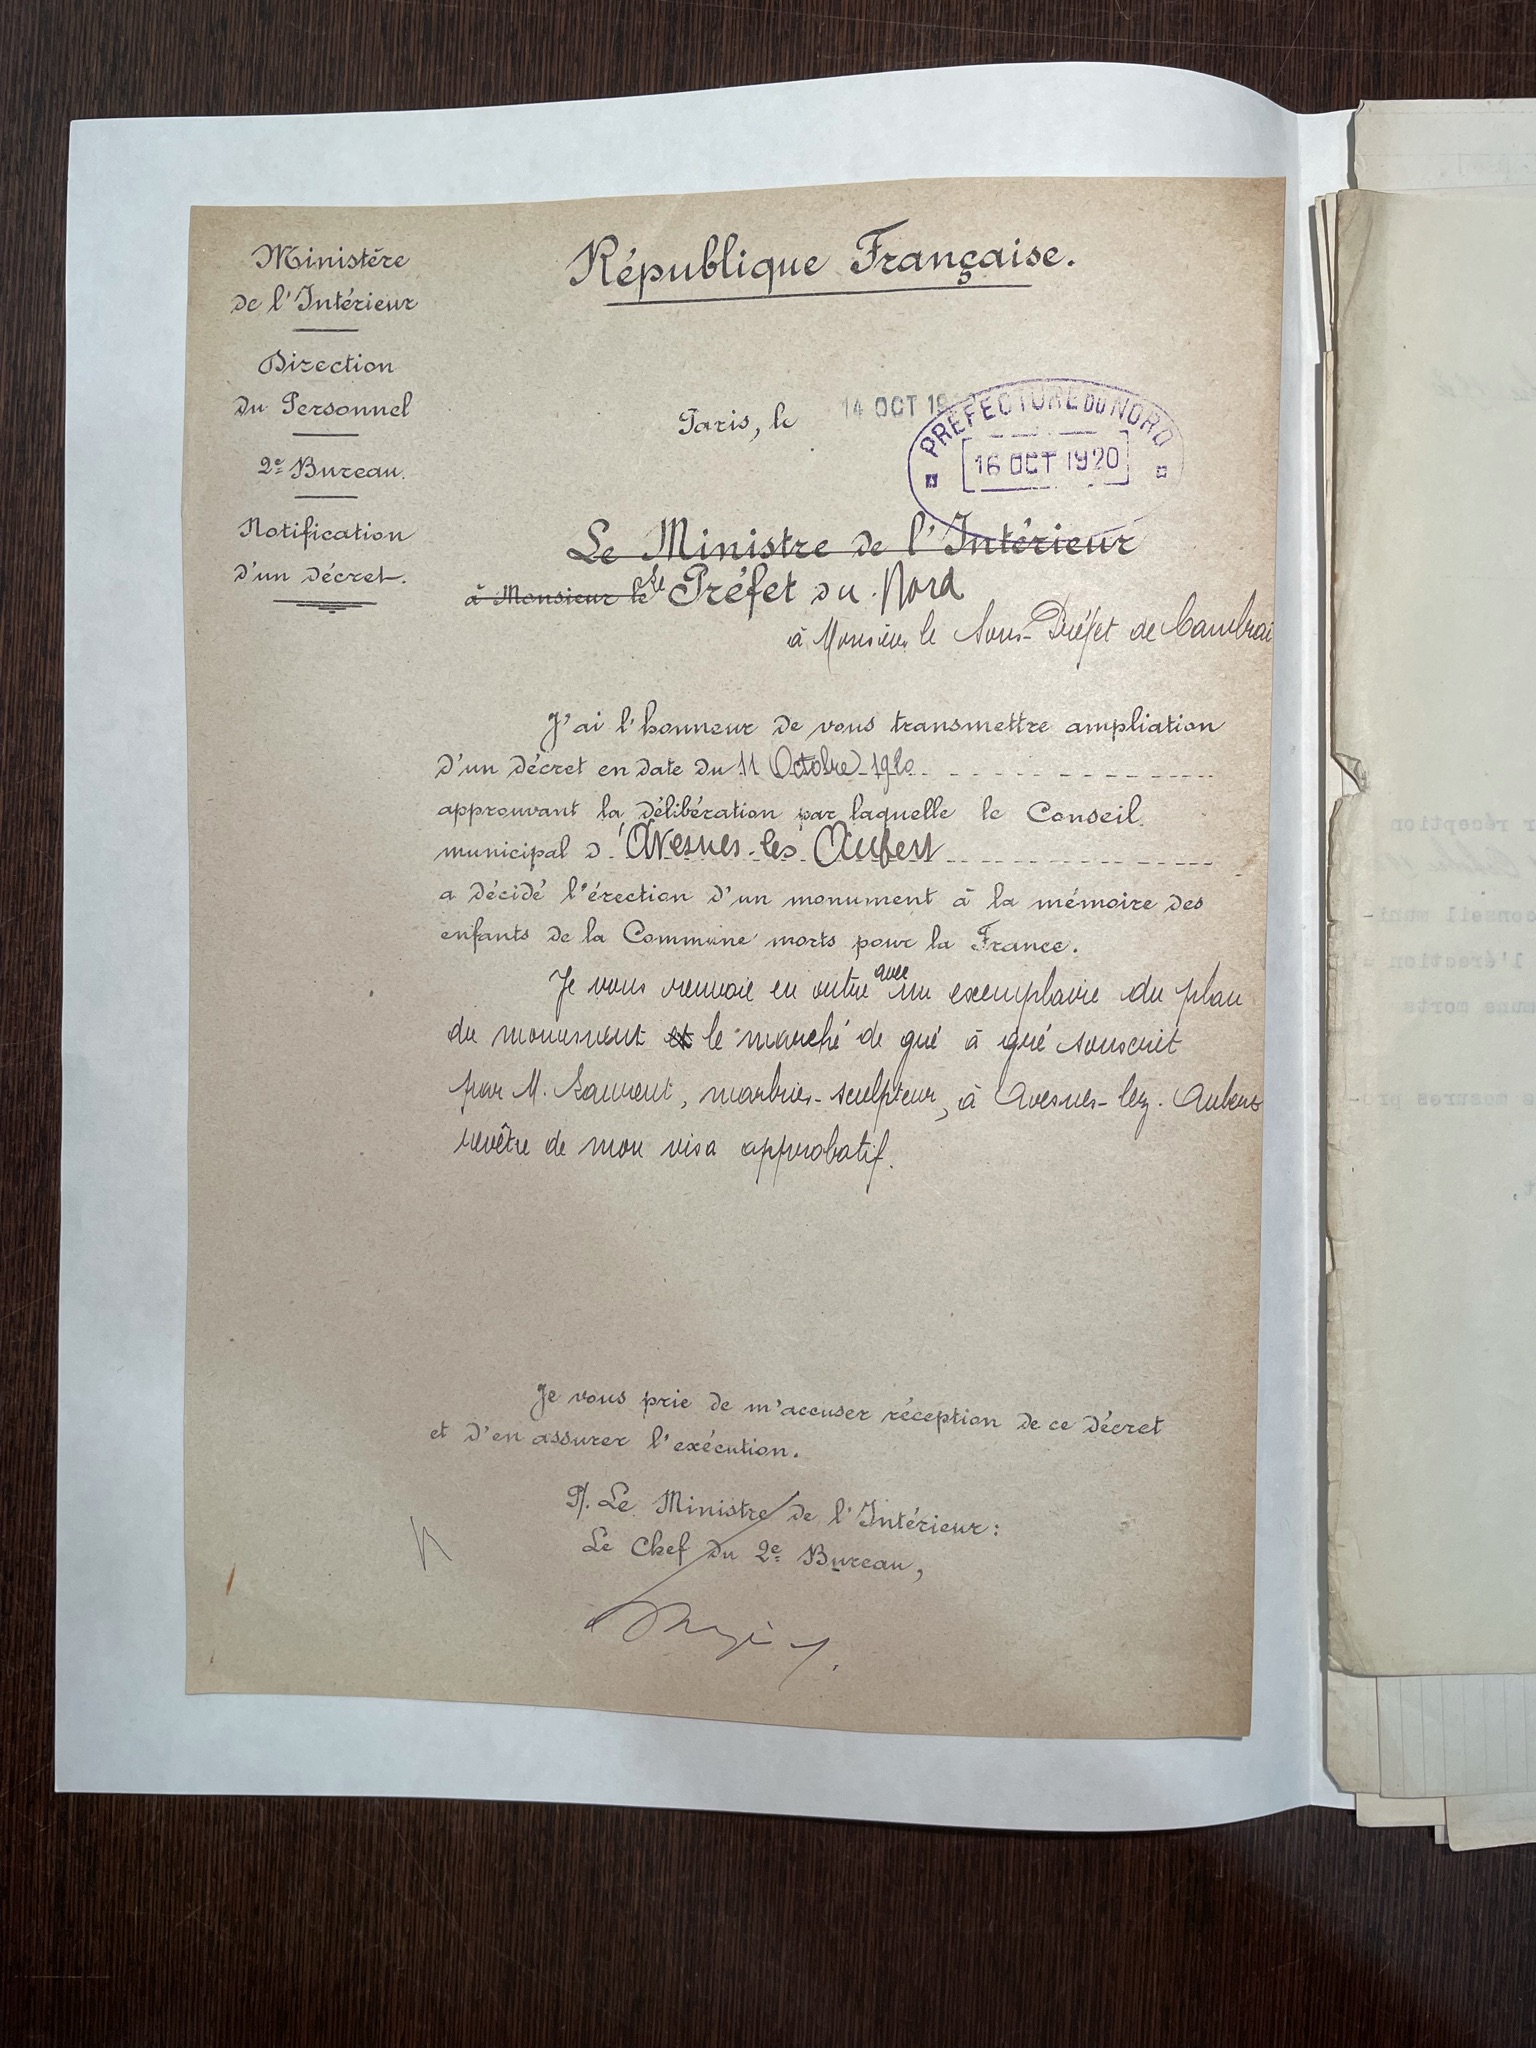 Ministère
de l'Intérieur
Direction
du Personnel
2e Bureau.
Notification
d'un décret.
République Française.
Paris, le 14 OCT 19
PREFECTURE DU NORD
16 OCT 1920
Le Ministre de l'Intérieur
à Monsieur le Le Préfet du Nord
à Monsieur le Sous-Préfet de Cambrai
J'ai l'honneur de vous transmettre ampliation
d'un décret en date du 11 Octobre 1920
approuvant la délibération par laquelle le Conseil
municipal d'Avesnes-les Aubert
a décidé l'érection d'un monument à la mémoire des
enfants de la Commune morts pour la France.
Je vous renvoie en outre avec un exemplaire du plan
du monument et le marché de gré à gré souscrit
par M. Laurent, marbrier-sculpteur, à Avesnes-lez-Aubert
revêtu de mon visa approbatif.
Je vous prie de m'accuser réception de ce décret
et d'en assurer l'exécution.
P/. Le Ministre de l'Intérieur:
Le Chef du 2e Bureau,
r réception
conseil muni-
l'érection d'
mune morts
s mesures pro-